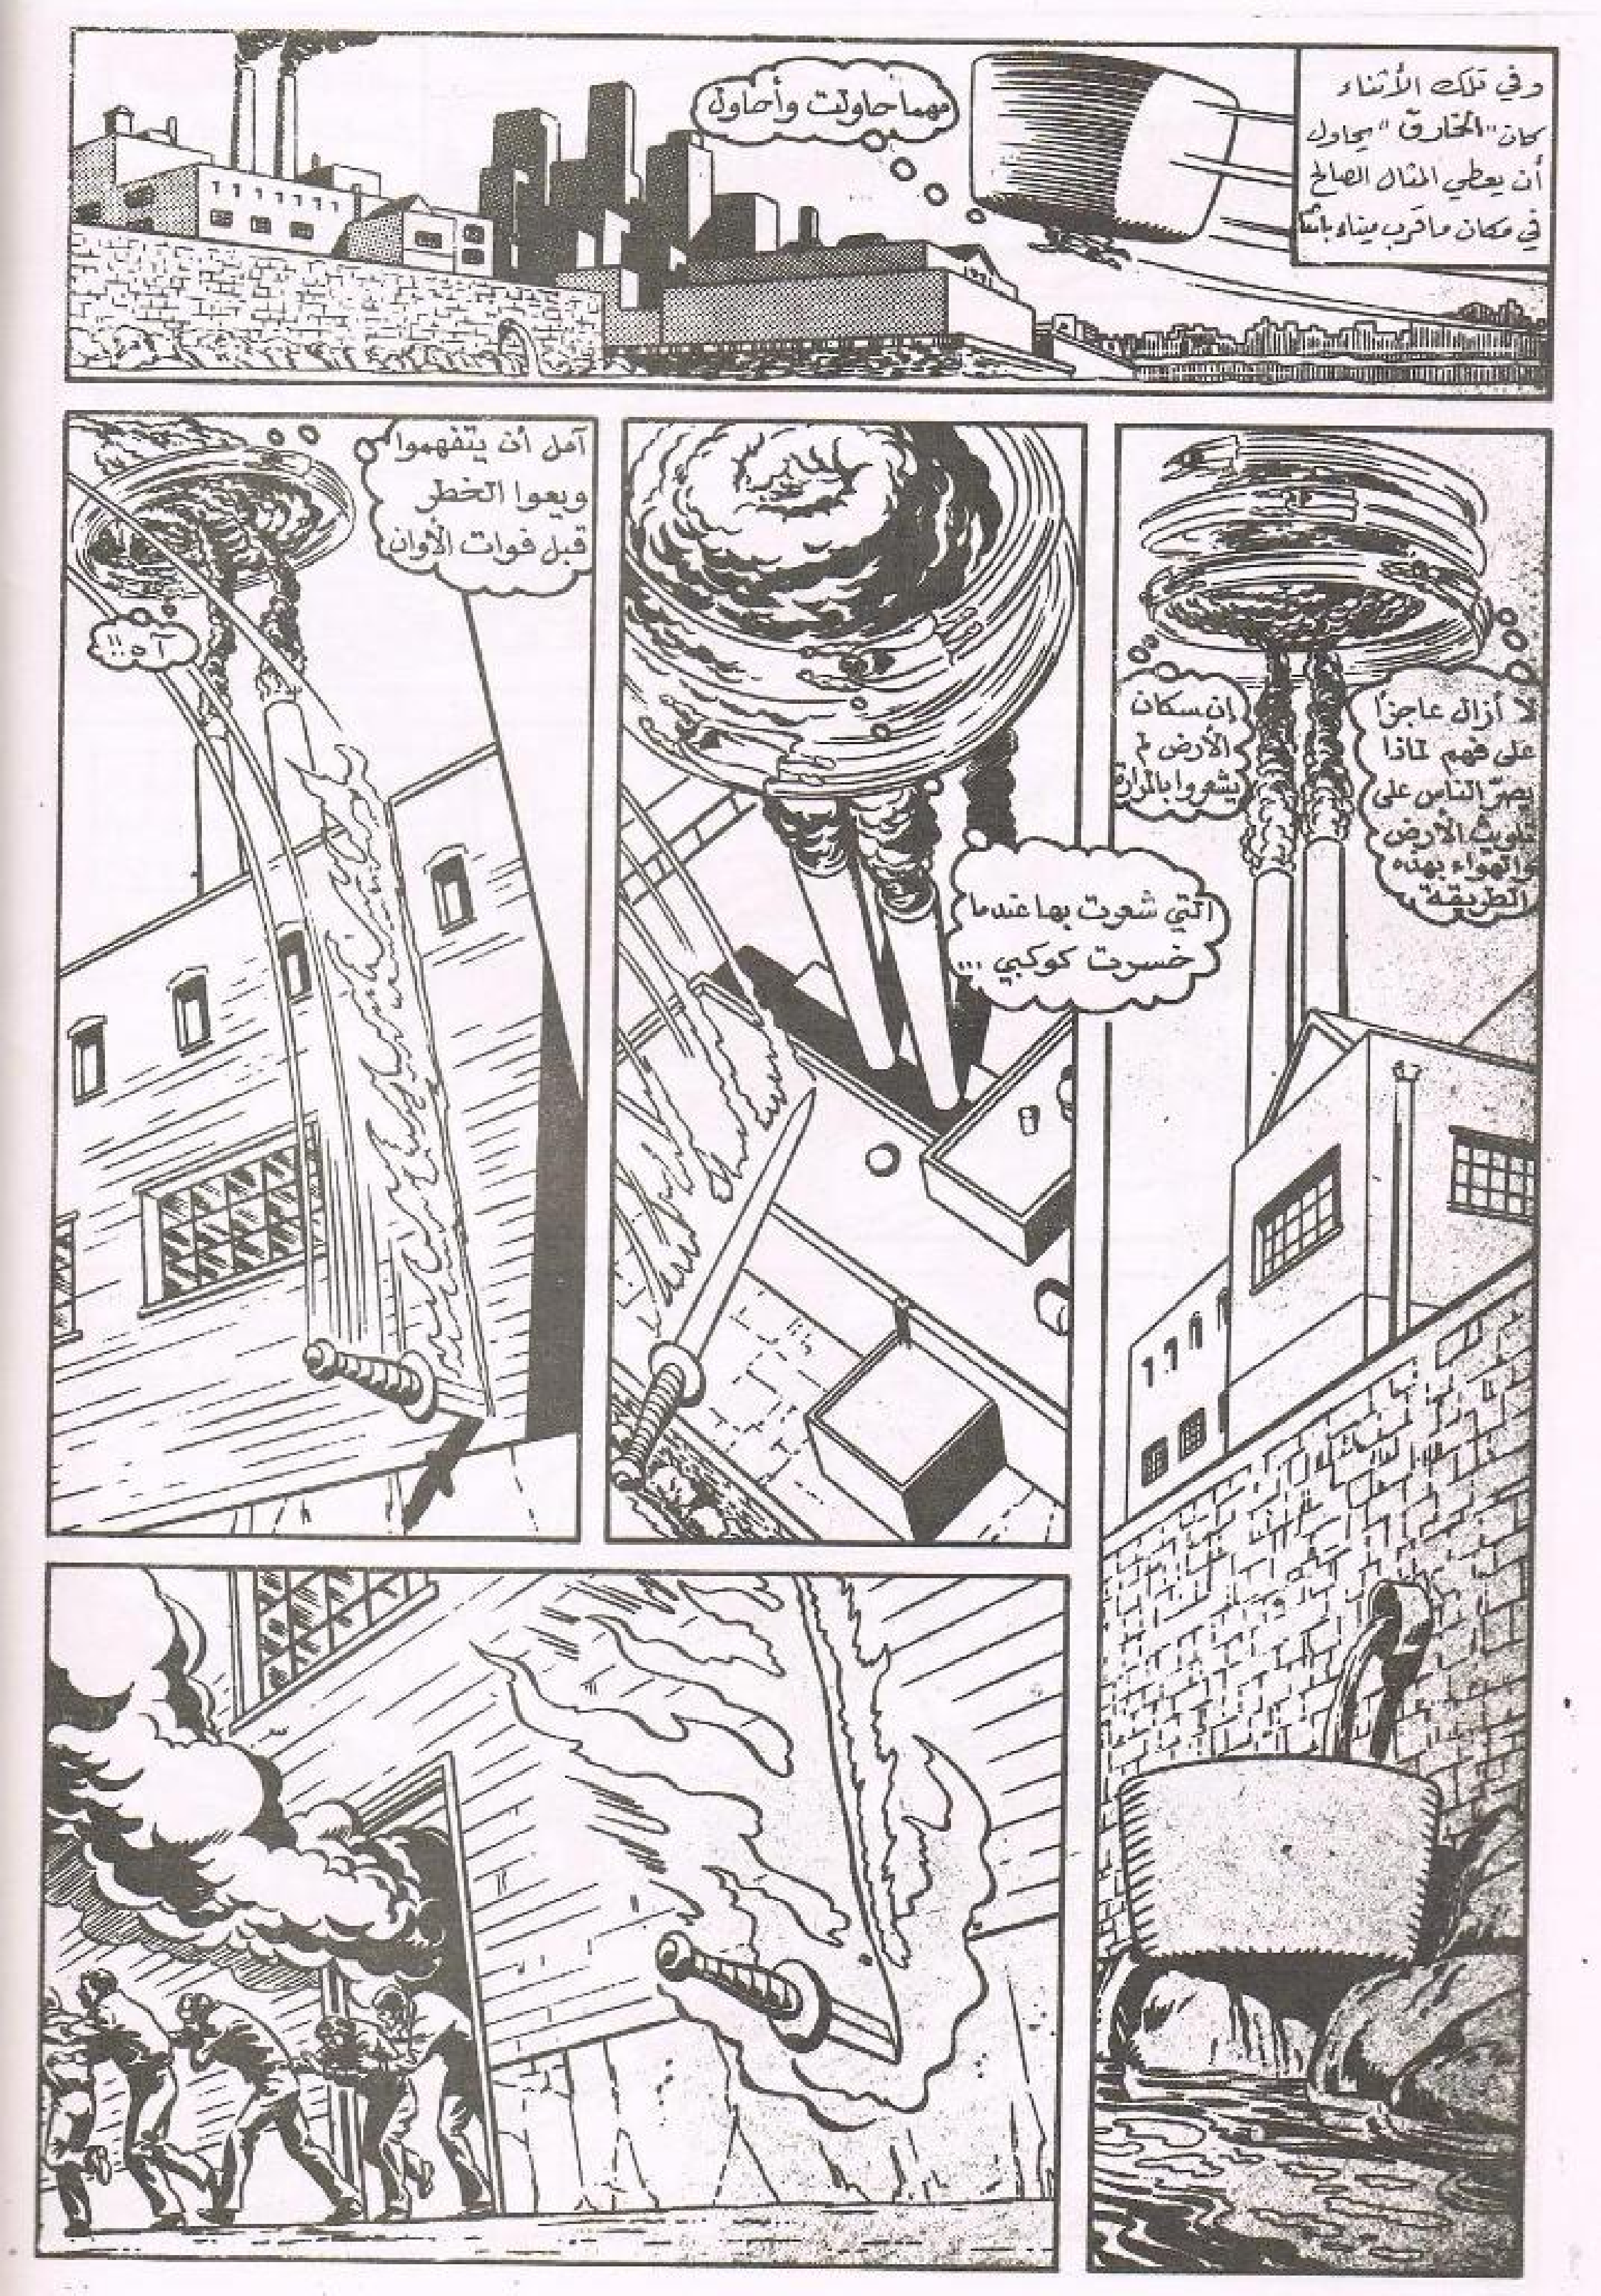 وفي تلك الأثناء
كان "الخارق" يحاول
أن يعطي المثال الصالح
في مكان ما قرب ميناء
مهما حاولت وأحاول
لا أزال عاجزاً
على فهم لماذا
يصرّ الناس على
تلويث الأرض
والهواء بهذه
الطريقة
إن سكان
الأرض لم
يشعروا بالمرارة
التي شعرت بها عندما
خسرت كوكبي ...
آمل أن يتفهموا
ويعوا الخطر
قبل فوات الأوان
آه !!